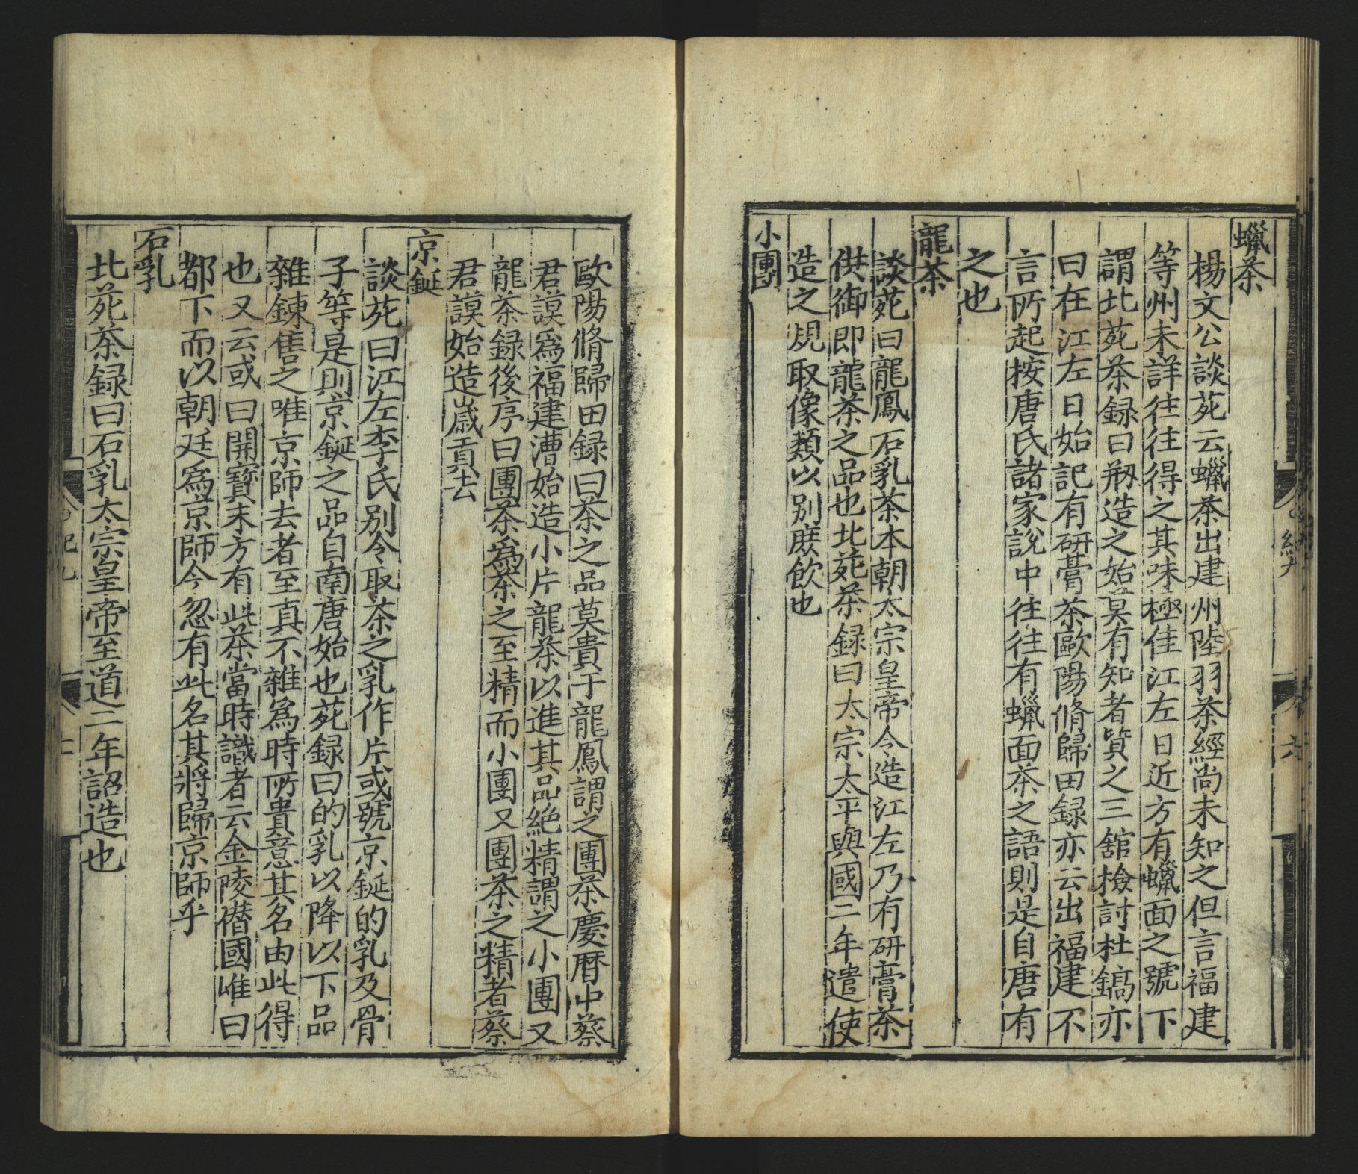 蠟茶
楊文公談苑云蠟茶出建州陸羽茶經尚未知之但言福建
等州未詳往往得之其味極佳江左日近方有蠟面之號丁
謂北苑茶録曰剏造之始莫有知者質之三舘檢討杜鎬亦
曰在江左日始記有研膏茶歐陽脩歸田録亦云出福建不
言所起按唐氏諸家說中往往有蠟面茶之語則是自唐有
之也
龍茶
談苑曰龍鳳石乳茶本朝太宗皇帝令造江左乃有研膏茶
供御即龍茶之品也北苑茶録曰太宗太平興國二年遣使
造之規取像類以别庶飲也
小團
歐陽脩歸田録曰茶之品莫貴于龍鳳謂之團茶慶曆中蔡
君謨爲福建漕始造小片龍茶以進其品絶精謂之小團又
龍茶録後序曰團茶爲茶之至精而小團又團茶之精者蔡
君謨始造嵗貢云
京鋋
談苑曰江左李氏别令取茶之乳作片或號京鋋的乳及骨
子等是則京鋋之品自南唐始也苑録曰的乳以降以下品
雜鍊售之唯京師去者至真不雜爲時所貴意其名由此得
也又云或曰開寶末方有此茶當時識者云金陵僣國唯曰
都下而以朝廷爲京師今忽有此名其將歸京師乎
石乳
北苑茶録曰石乳太宗皇帝至道二年詔造也